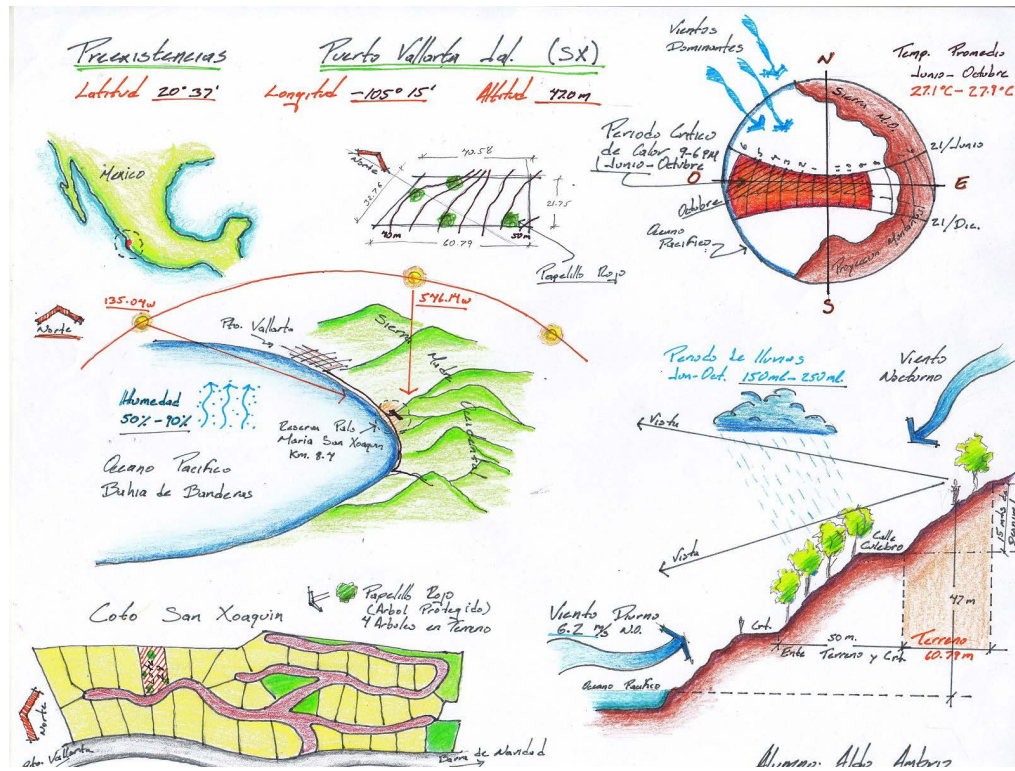 Preexistencias
Puerto Vallarta Jal. (SX)
Latitud 20° 37'
Longitud -105° 15'
Altitud 47.0 m
Mexico
Norte
40.58
32.76
21.75
40m
50m
60.79
Papelillo Rojo
Vientos
Dominantes
Temp. Promedio
Junio - Octubre
27.1°C - 27.9°C
Periodo Critico
de Calor 9-6 PM
Junio-Octubre
N
Sierra
21/Junio
O
E
Octubre
21/Dic.
Oceano
Pacifico
Proyeccion Montañas
S
135.04w
546.14w
Norte
Pto. Vallarta
Sierra
Madre
Occidental
Humedad
50% - 90%
Reserva Palo
Maria San Xoaquin
Km. 8.4
Oceano Pacifico
Bahia de Banderas
Periodo de lluvias
Jun-Oct. 150ml - 250ml.
Viento
Nocturno
Vista
Vista
Calle
Culebro
15 mts de
47 m
Viento Diurno
6.2 m/s N.O.
Crt.
50 m.
Ente Terreno y Crt.
Terreno
60.79m
Oceano Pacifico
Coto San Xoaquin
Papelillo Rojo
(Arbol Protegido)
4 Arboles en Terreno
Norte
Pto. Vallarta
Barra de Navidad
Alumno: Aldo Ambriz